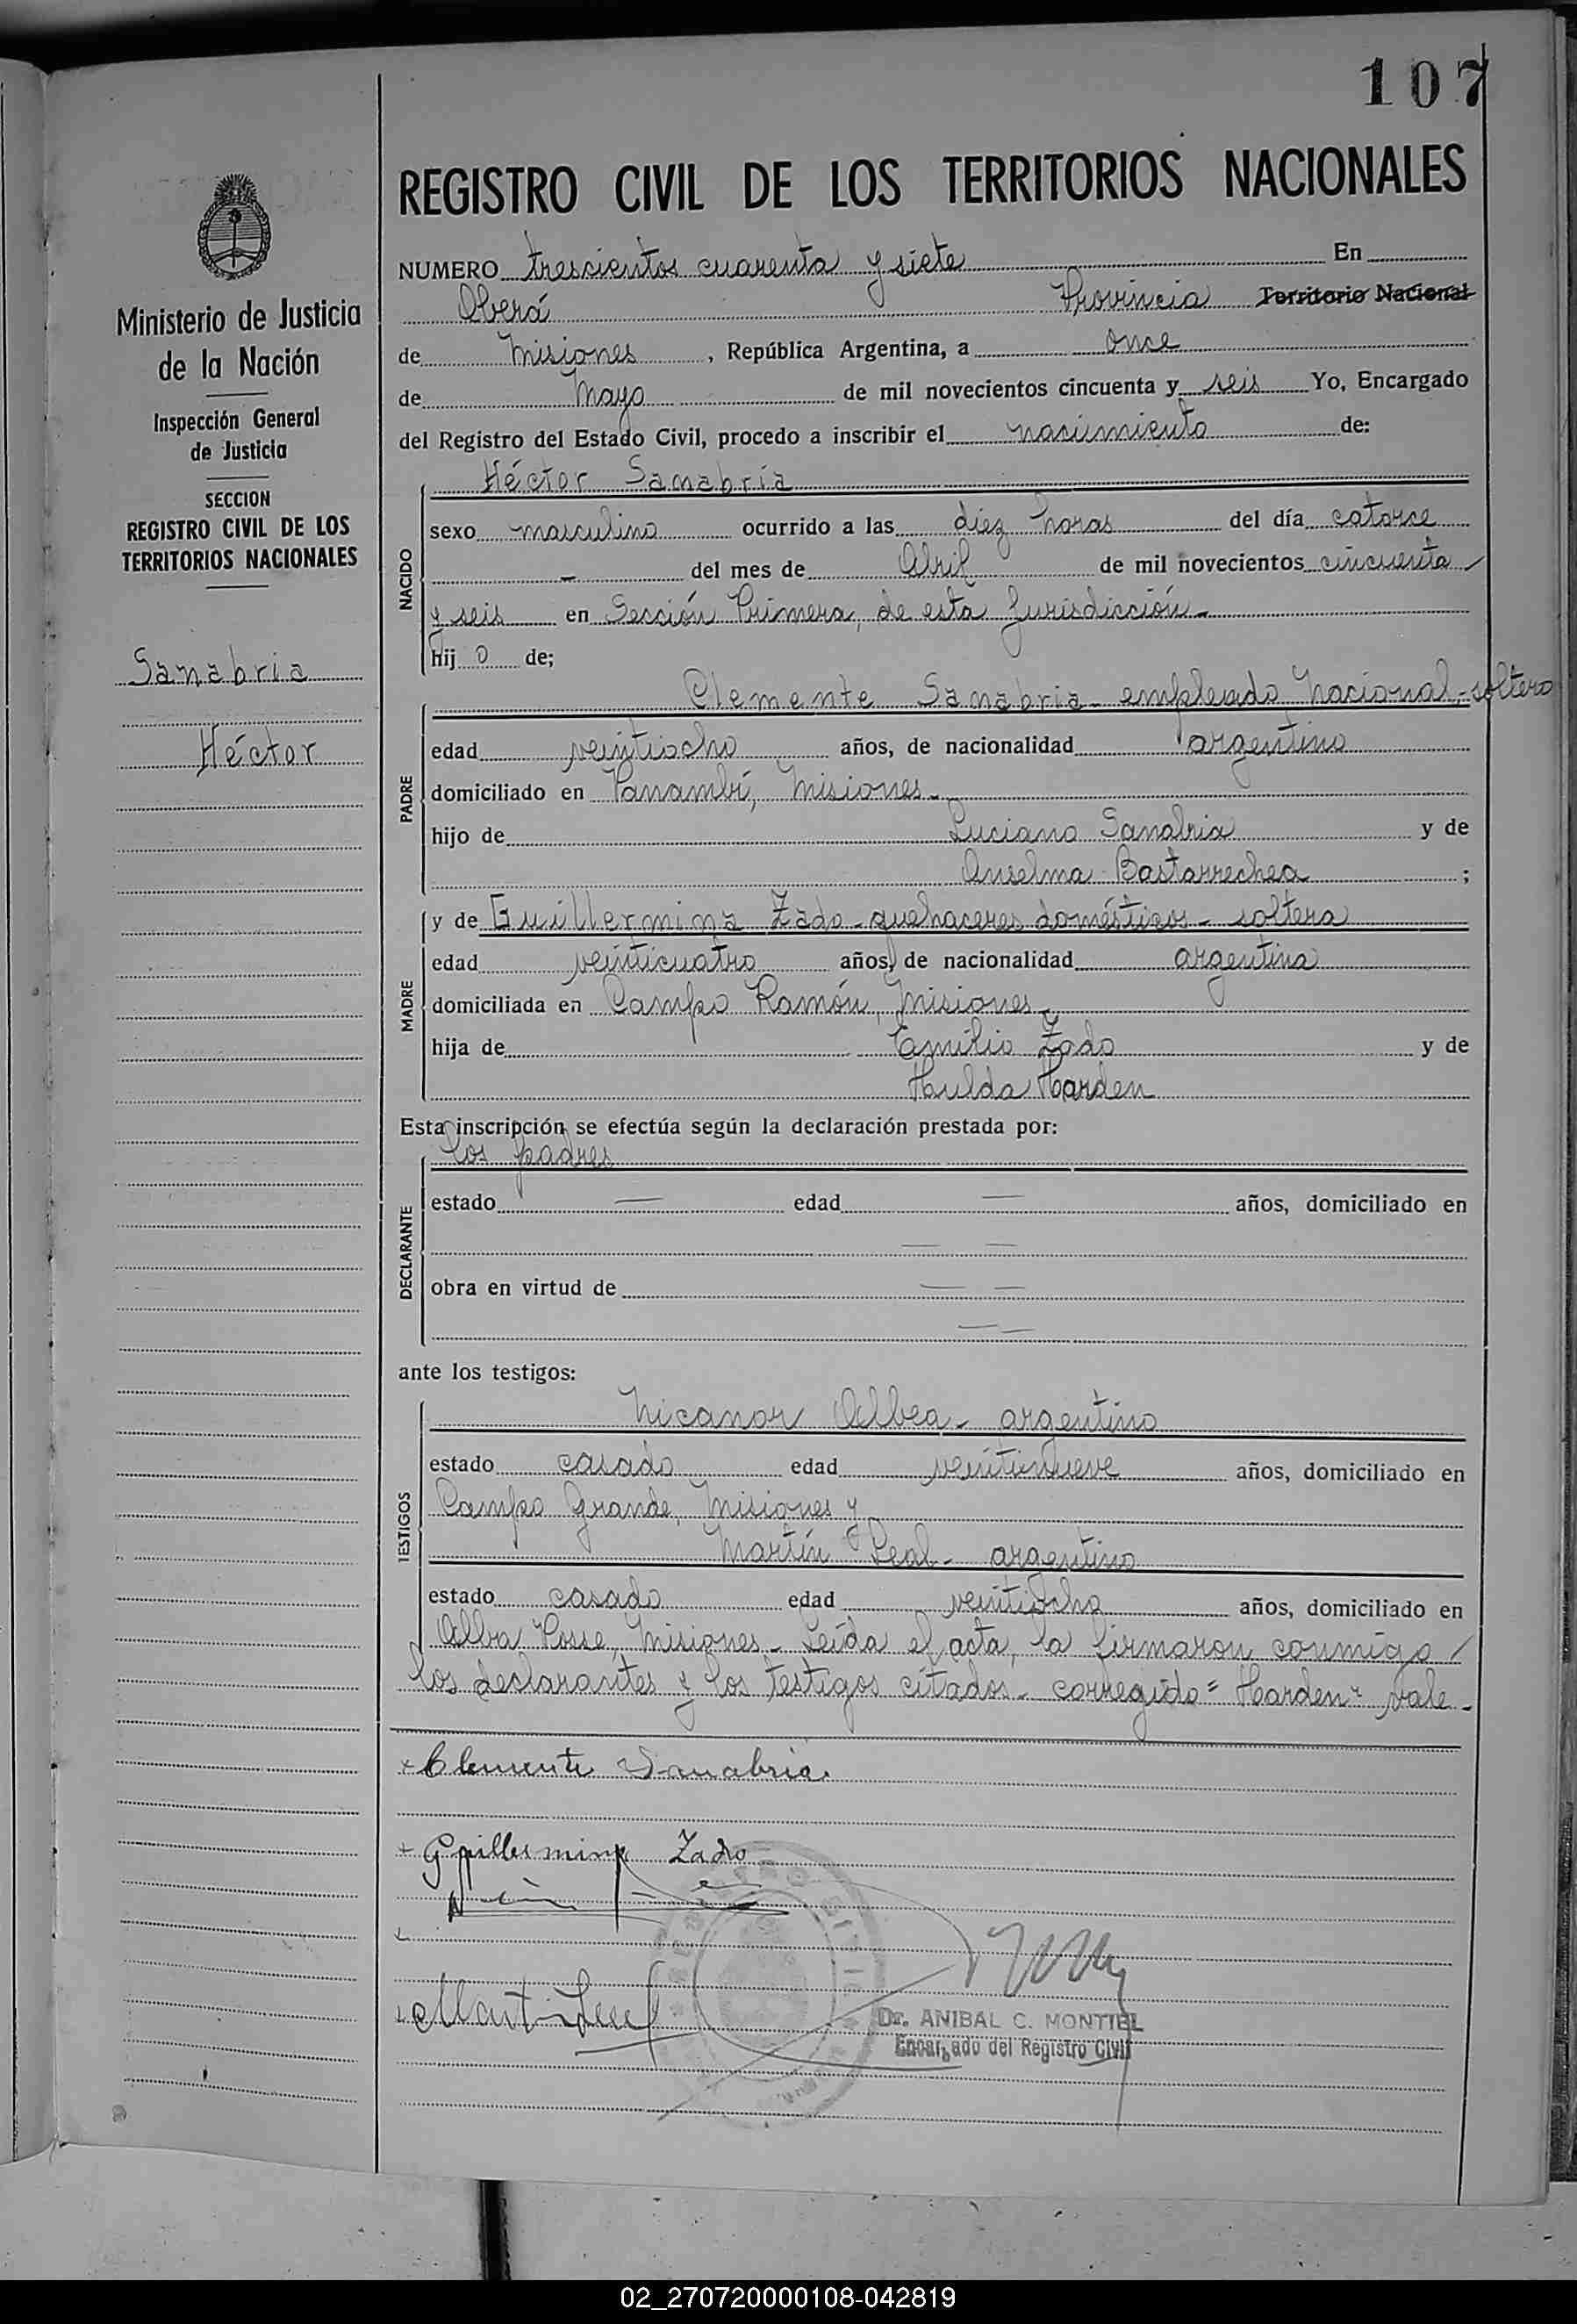 107
REGISTRO CIVIL DE LOS TERRITORIOS NACIONALES
Ministerio de Justicia
de la Nación
Inspección General
de Justicia
SECCION
REGISTRO CIVIL DE LOS
TERRITORIOS NACIONALES
Sanabria
Héctor
NUMERO trescientos cuarenta y siete En
Oberá Provincia Territorio Nacional
de Misiones, República Argentina, a once
de Mayo de mil novecientos cincuenta y seis Yo, Encargado
del Registro del Estado Civil, procedo a inscribir el nacimiento de:
Héctor Sanabria
NACIDO
sexo masculino ocurrido a las diez horas del día catorce
- del mes de Abril de mil novecientos cincuenta
y seis en Sección Primera, de esta Jurisdicción-
hij o de;
Clemente Sanabria- empleado Nacional,- soltero
PADRE
edad veintiocho años, de nacionalidad argentino
domiciliado en Panambí, Misiones-
hijo de Luciano Sanabria y de
Anselma Bastarrechea ;
y de Guillermina Zado- quehaceres domésticos- soltera
MADRE
edad veinticuatro años, de nacionalidad argentina
domiciliada en Campo Ramón, Misiones-
hija de Emilio Zado y de
Hulda Harden
Esta inscripción se efectúa según la declaración prestada por:
los padres
DECLARANTE
estado — edad — años, domiciliado en
— —
obra en virtud de — —
— —
ante los testigos:
Nicanor Albea- argentino
TESTIGOS
estado casado edad veintinueve años, domiciliado en
Campo Grande, Misiones y
Martín Leal- argentino
estado casado edad veintiocho años, domiciliado en
Alba Posse, Misiones- Leída el acta, la firmaron conmigo
los declarantes y los testigos citados- corregido "Harden" vale-
Clemente Sanabria
Guillermina Zado
Martin Leal
Dr. ANIBAL C. MONTIEL
Encargado del Registro Civil
02_270720000108-042819